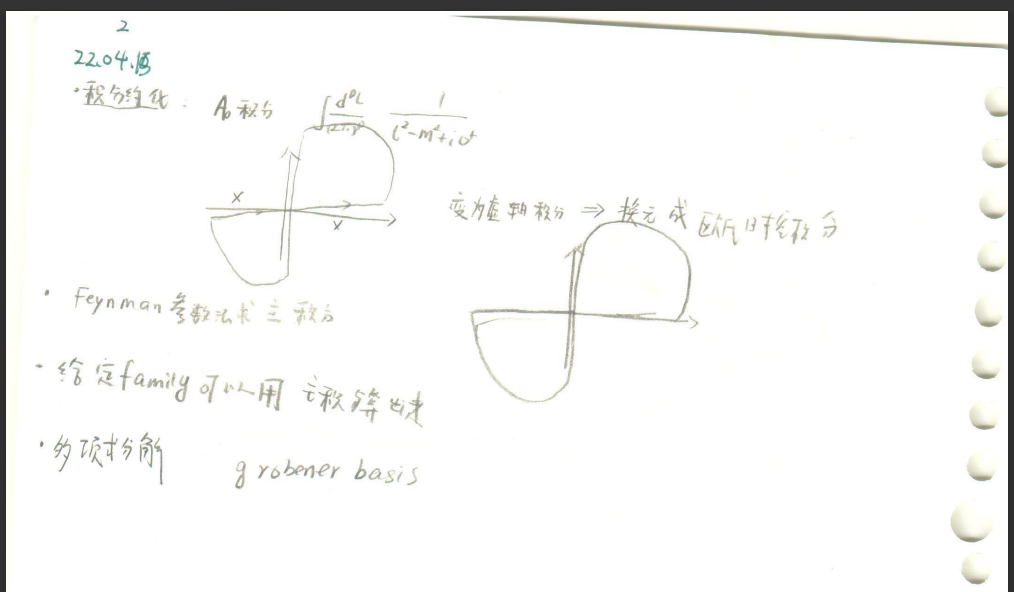 2
22.04.
·积分约化： A₀积分 ∫ d^D l / (2π)^D 1 / (l²-m²+i0⁺)
x
x
变为虚轴积分 ⇒ 换元成 欧氏 积分
· Feynman 参数法求主积分
· 给定family可以用 主积分算出来
· 多项式分解 grobener basis